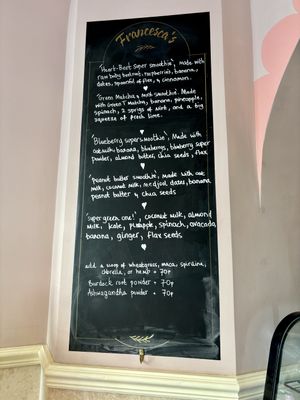 Francesca's
'Heart-Beet super smoothie', made with
raw baby beetroot, raspberries, banana,
dates, spoonful of flax, & cinnamon.
'Green Matcha & mint smoothie'. Made
with Green T Matcha, banana, pineapple,
spinach, 2 sprigs of mint, and a big
squeeze of fresh lime.
'Blueberry super smoothie', Made with
oat milk, banana, bluberrys, bluberry super
powder, almond butter, chia seeds, flax
'peanut butter smoothie', made with oat
milk, coconut milk, medjool dates, banana
peanut butter & chia seeds
'super green one!', coconut milk, almond
milk, kale, pineapple, spinach, avacado,
banana, ginger, flax seeds
add a scoop of wheatgrass, maca, spirulina,
chlorella, or hemp + 70p
Burdock root powder + 70p
Ashwagandha powder + 70p